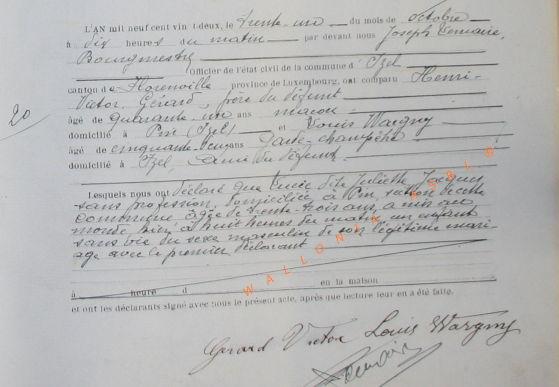 L'AN mil neuf cent vin t-deux, le trente-un du mois de octobre
à dix heures du matin par devant nous Joseph Lemaire,
Bourgmestre
Officier de l'état civil de la commune d'Izel
canton de Florenville, province de Luxembourg, ont comparu Henri-
Victor Gérard, père du défunt
âgé de quarante-un ans maçon
domicilié à Pin (Izel) et Louis Wargny
âgé de cinquante- ans Garde-champêtre
domicilié à Izel, ami du défunt
Lesquels nous ont déclaré que Lucie dite Juliette Jacques
sans profession, domiciliée à Pin, section de cette
commune, âgée de trente-trois ans, a mis au
monde, hier, à huit heures du matin, un enfant
sans vie du sexe masculin de son légitime mari-
age avec le premier déclarant
à heure d en la maison
et ont les déclarants signé avec nous le présent acte, après que lecture leur en a été faite.
Gérard Victor Louis Wargny
Lemaire
20
WALLONIA